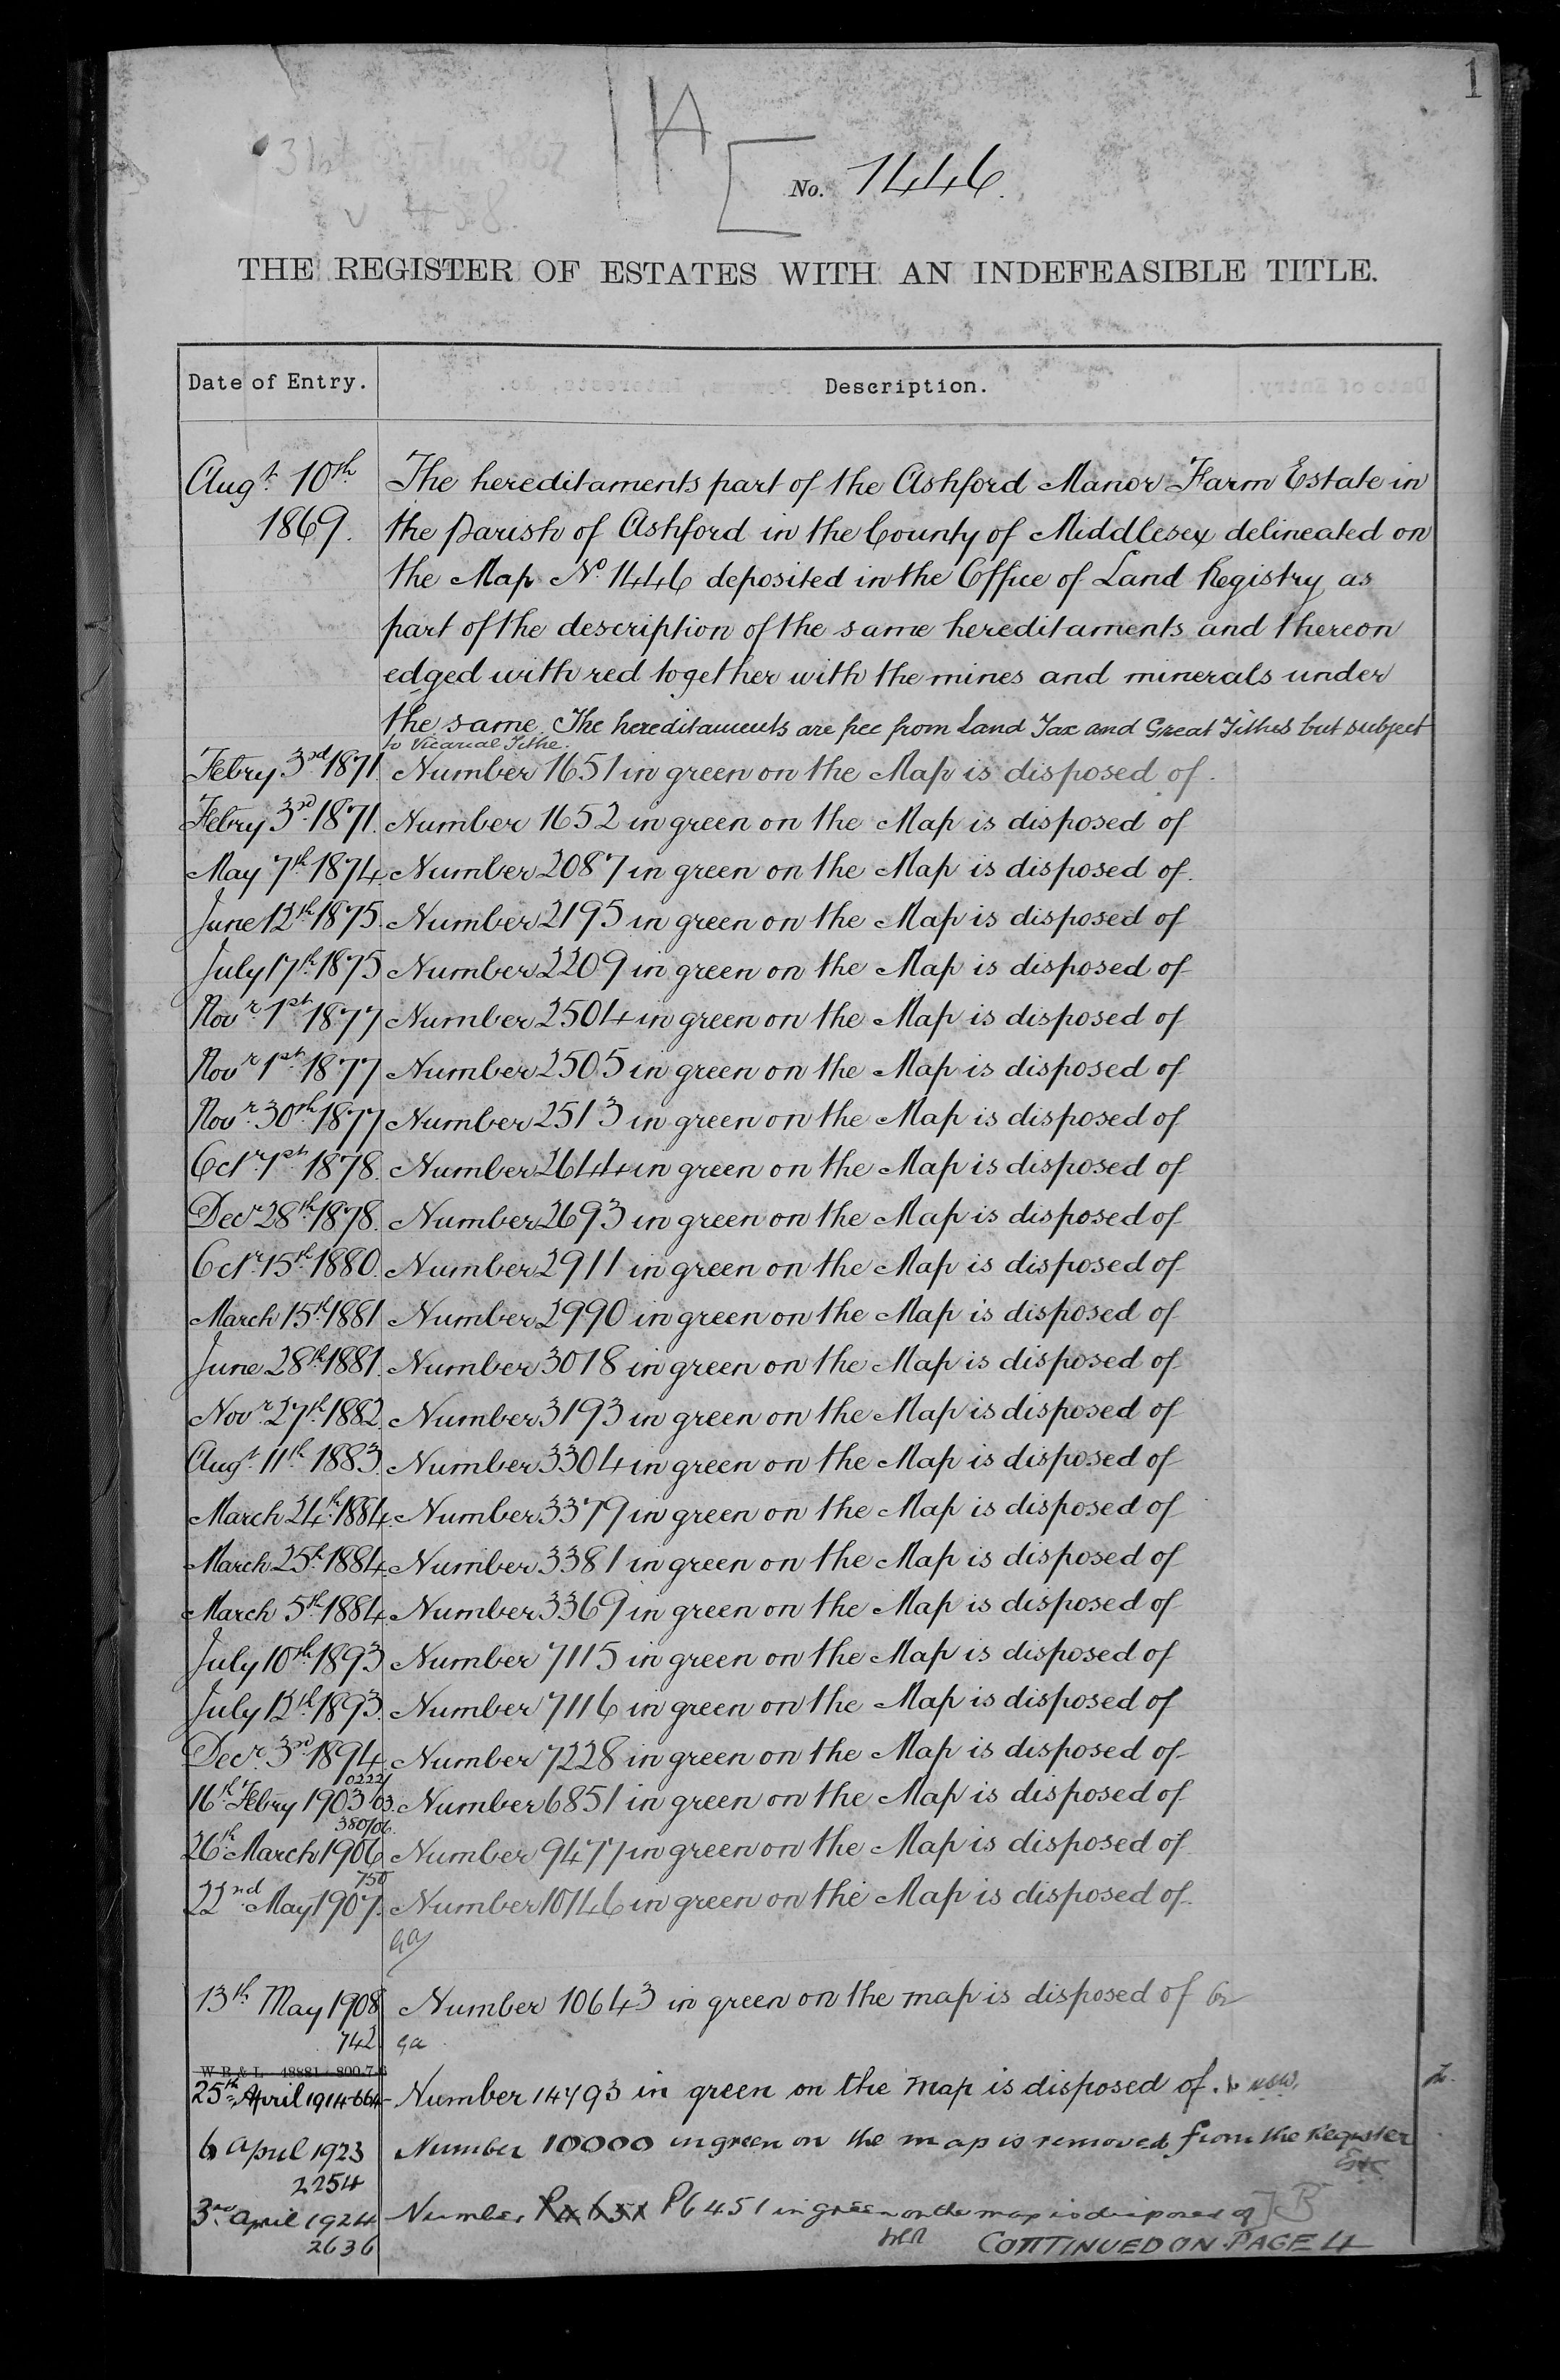 1
1A
No. 1446.
THE REGISTER OF ESTATES WITH AN INDEFEASIBLE TITLE.
Date of Entry. Description.
Augt. 10th The hereditaments part of the Ashford Manor Farm Estate in
1869. the Parish of Ashford in the County of Middlesex delineated on
the Map No. 1446 deposited in the Office of Land Registry as
part of the description of the same hereditaments and thereon
edged with red together with the mines and minerals under
the same. The hereditaments are free from Land Tax and Great Tithes but subject
to Vicarial Tithe.
Febry 3rd 1871 Number 1651 in green on the Map is disposed of.
Febry 3rd 1871. Number 1652 in green on the Map is disposed of
May 7th 1874. Number 2087 in green on the Map is disposed of.
June 12th 1875. Number 2195 in green on the Map is disposed of
July 17th 1875 Number 2209 in green on the Map is disposed of
Novr. 1st 1877 Number 2504 in green on the Map is disposed of
Novr. 1st 1877 Number 2505 in green on the Map is disposed of
Novr. 30th 1877 Number 2513 in green on the Map is disposed of
Octr. 1st 1878. Number 2644 in green on the Map is disposed of
Decr 28th 1878. Number 2693 in green on the Map is disposed of
Octr. 15th 1880. Number 2911 in green on the Map is disposed of
March 15th 1881 Number 2990 in green on the Map is disposed of
June 28th 1881. Number 3018 in green on the Map is disposed of
Novr. 27th 1882. Number 3193 in green on the Map is disposed of
Augt. 11th 1883. Number 3304 in green on the Map is disposed of
March 24th 1884. Number 3379 in green on the Map is disposed of
March 25th 1884. Number 3381 in green on the Map is disposed of
March 5th 1884. Number 3369 in green on the Map is disposed of
July 10th 1893 Number 7115 in green on the Map is disposed of
July 12th 1893. Number 7116 in green on the Map is disposed of
Decr. 3rd 1894. Number 7228 in green on the Map is disposed of
0222/
16th Febry 1903 03. Number 6851 in green on the Map is disposed of
380/06.
26th March 1906 Number 9477 in green on the Map is disposed of
750
22nd May 1907. Number 10146 in green on the Map is disposed of
ga
13th May 1908 Number 10643 in green on the map is disposed of
742 ga
W B & L 48881—800-7-6
25th April 1914 664 Number 14793 in green on the map is disposed of.
6 April 1923 Number 10000 in green on the map is removed from the Register
2254
3rd April 1924 Number P6451 in green on the map is disposed of] B
2636 CONTINUED ON PAGE 4